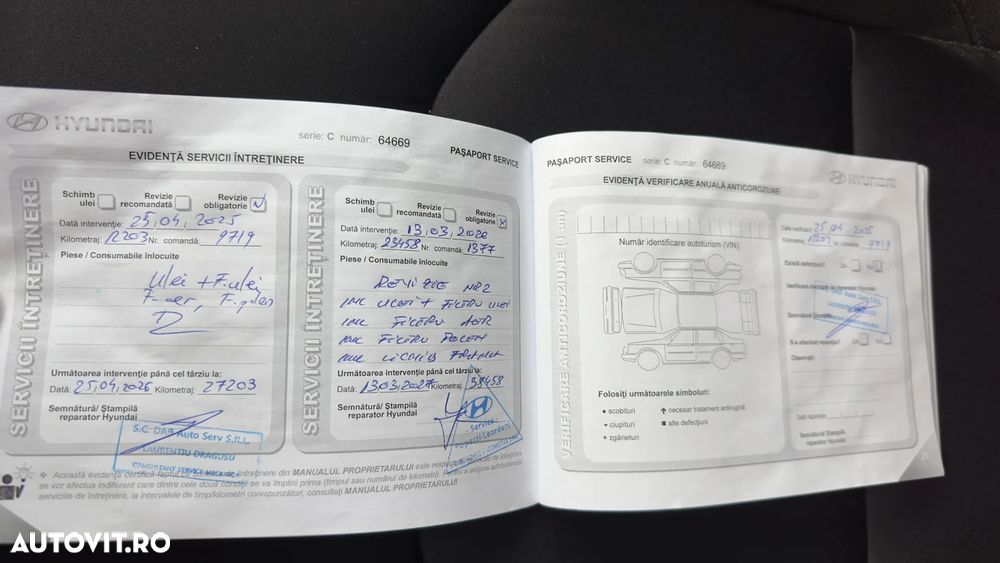 HYUNDAI
serie: C număr: 64669
EVIDENȚĂ SERVICII ÎNTREȚINERE
PAȘAPORT SERVICE
SERVICII ÎNTREȚINERE
Schimb ulei
Revizie recomandată
Revizie obligatorie
Dată intervenție: 25,04,2025
Kilometraj: 12203 Nr. comandă: 9719
Piese / Consumabile înlocuite
Ulei + F.ulei
F-aer, F.polen
Următoarea intervenție până cel târziu la:
Dată: 25,04,2026 Kilometraj: 27203
Semnătură/ Ștampilă
reparator Hyundai
S.C. DAB Auto Serv S.R.L.
LAURENTIU DRAGUSU
SERVICII ÎNTREȚINERE
Schimb ulei
Revizie recomandată
Revizie obligatorie
Dată intervenție: 13,03,2026
Kilometraj: 23458 Nr. comandă 1377
Piese / Consumabile înlocuite
REVIZIE NR2
ULEI + FILTRU ULEI
FILTRU AER
FILTRU POLEN
LICHID FRANA
Următoarea intervenție până cel târziu la:
Dată: 13.03.2027 Kilometraj: 38458
Semnătură/ Ștampilă
reparator Hyundai
service
Popești-Leordeni
Această evidență certifică faptul că
întreținere din MANUALUL PROPRIETARULUI este respectat
se vor efectua indiferent care dintre cele două condiții se va împlini prima (timpul sau numărul de kilometri). Pentru a asigura autoturismului
serviciile de întreținere, la intervalele de timp/kilometri corespunzători, consultați MANUALUL PROPRIETARULUI.
PAȘAPORT SERVICE serie: C număr: 64669
HYUNDAI
EVIDENȚĂ VERIFICARE ANUALĂ ANTICOROZIUNE
VERIFICARE ANTICOROZIUNE (1 an)
Număr identificare autoturism (VIN):
Folosiți următoarele simboluri:
• scobituri
necesar tratament antirugină
- ciupituri
■ alte defecțiuni
+ zgârieturi
Dată verificării: 25,04,2025
Kilometraj: 12203 Nr. comandă: 9719
Există defecțiuni? DA NU
Verificare efectuată de reparator Hyundai
DAB Auto Serv S.R.L.
Semnătură/ Ștampilă
S-a efectuat reparația? DA NU
Observații:
Dată reparației:
Semnătură/ Ștampilă
reparator Hyundai
21
AUTOVIT.RO